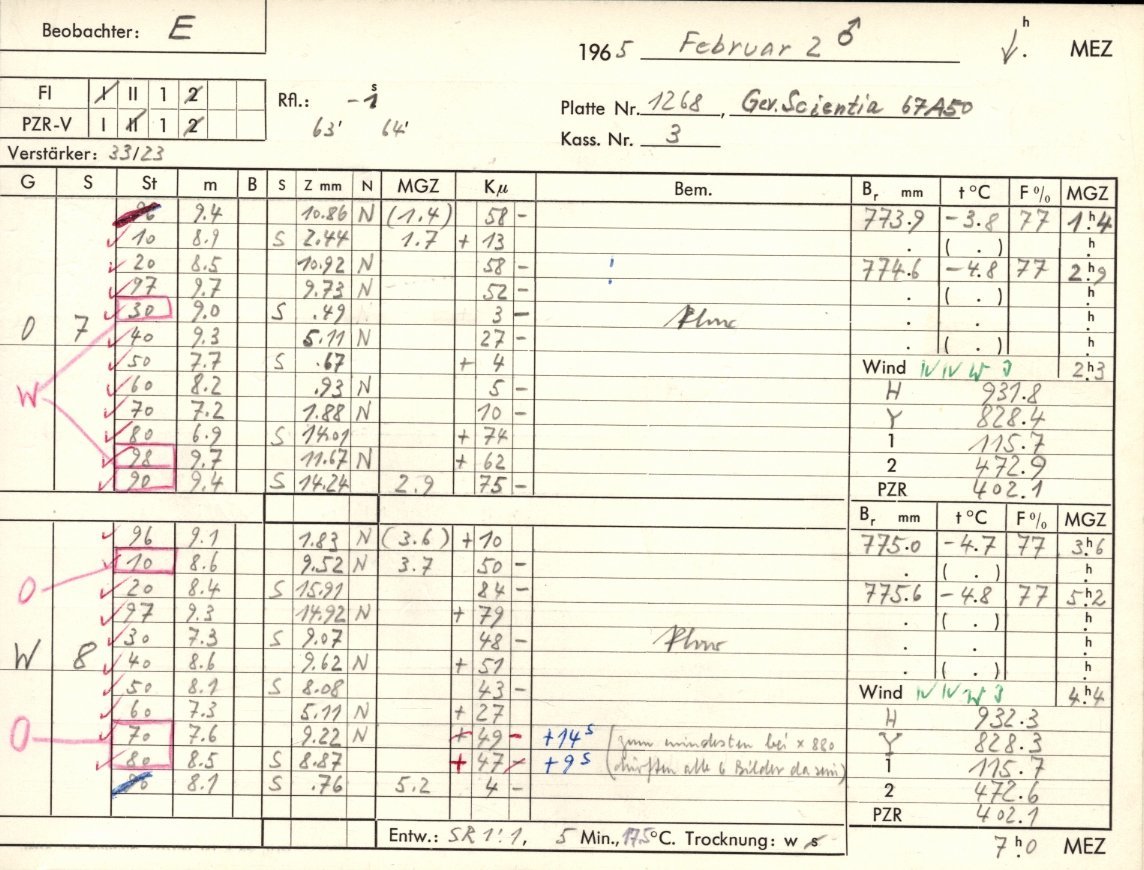 Beobachter: E
1965 Februar 2 ♂ h . MEZ
FI I II 1 2
PZR-V I II 1 2
Rfl.: -1 s
63' 64'
Platte Nr. 1268, Gev. Scientia 67A50
Kass. Nr. 3
Verstärker: 33/23
G S St m B S Z mm N MGZ Kμ Bem. Br mm t °C F % MGZ
9.4 10.86 N (1.4) 58 - 773.9 -3.8 77 1h.4
10 8.9 S 2.44 1.7 + 13 . ( . ) h
20 8.5 10.92 N 58 - 774.6 -4.8 77 2h.9
97 9.7 9.73 N 52 - . ( . ) h
30 9.0 S .49 3 - . . h
O 7 40 9.3 5.11 N 27 - . ( . ) h
50 7.7 S .67 + 4 Wind IV IV W 3 2h.3
W 60 8.2 .93 N 5 - H 931.8
70 7.2 1.88 N 10 - Y 828.4
80 6.9 S 14.01 + 74 1 115.7
98 9.7 11.67 N + 62 2 472.9
90 9.4 S 14.24 2.9 75 - PZR 402.1
Br mm t °C F % MGZ
96 9.1 1.83 N (3.6) + 10 775.0 -4.7 77 3h.6
10 8.6 9.52 N 3.7 50 - . ( . ) h
O 20 8.4 S 15.91 84 - 775.6 -4.8 77 5h.2
97 9.3 14.92 N + 79 . ( . ) h
30 7.3 S 9.07 48 - . . h
W 8 40 8.6 9.62 N + 51 . ( . ) h
50 8.1 S 8.08 43 - Wind IV IV W 3 4h.4
60 7.3 5.11 N + 27 H 932.3
O 70 7.6 9.22 N + 49 - +14 s (zum mindesten bei x 880 Y 828.3
80 8.5 S 8.87 + 47 - +9 s (dürften alle 6 Bilder da sein) 1 115.7
8.1 S .76 5.2 4 - 2 472.6
PZR 402.1
Entw.: SR 1:1, 5 Min., 17.5 °C. Trocknung: w s
7h.0 MEZ